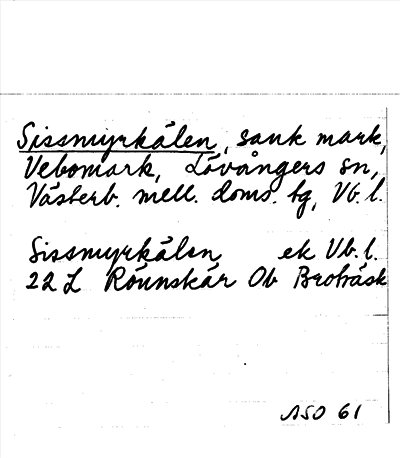 Sissmyrkälen, sank mark,
Vebomark, Lövångers sn,
Västerb. mell. doms. tg, Vb. l.
Sissmyrkälen ek Vb. l.
22 L Rönnskär Ob Broträsk
ASO 61